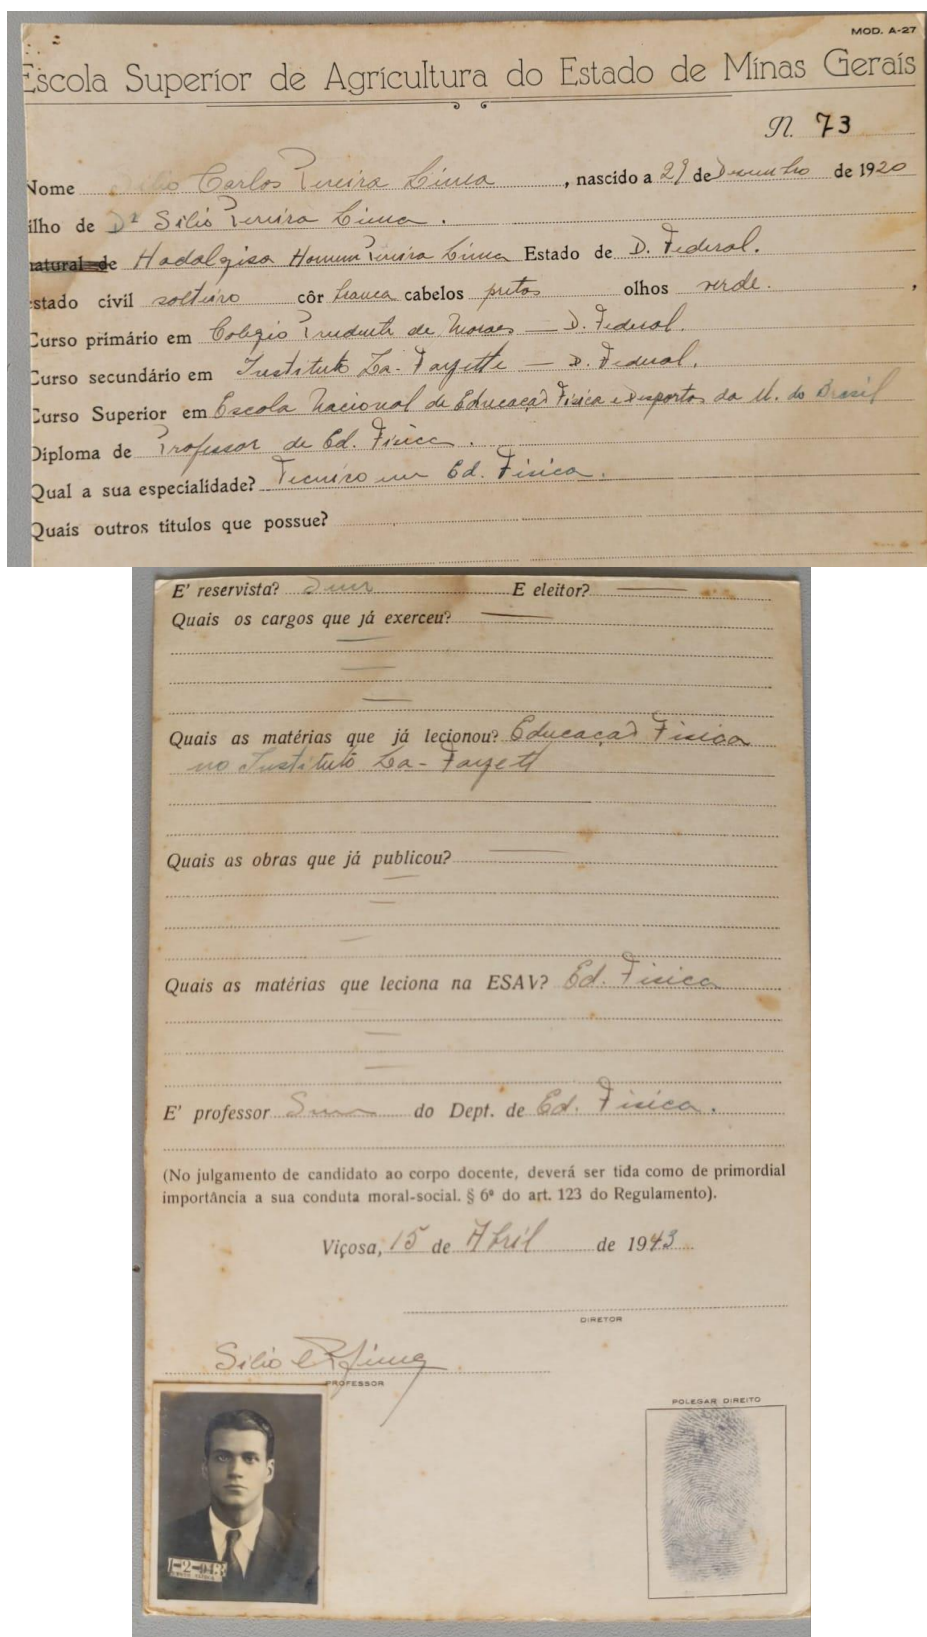 MOD. A-27
Escola Superior de Agricultura do Estado de Minas Gerais
N. 73
Nome Carlos Pereira Lima, nascido a 29 de Dezembro de 1920
ilho de Dr Silio Pereira Lima.
natural de Hadalgisa Homem Pereira Lima Estado de D. Federal.
estado civil solteiro côr branca cabelos pretos olhos verde. ,
Curso primário em Colegio Prudente de Moraes — D. Federal.
Curso secundário em Instituto La-Fayette — D. Federal.
Curso Superior em Escola Nacional de Educação Fisica e Desportos da U. do Brasil
Diploma de Professor de Ed. Fisica.
Qual a sua especialidade? Tecnico em Ed. Fisica.
Quais outros títulos que possue?
E' reservista? Sim E eleitor? —
Quais os cargos que já exerceu? —
—
—
—
Quais as matérias que já lecionou? Educação Fisica
no Instituto La-Fayett
Quais as obras que já publicou? —
—
—
—
Quais as matérias que leciona na ESAV? Ed. Fisica
—
—
E' professor Sim do Dept. de Ed. Fisica.
(No julgamento de candidato ao corpo docente, deverá ser tida como de primordial
importância a sua conduta moral-social. § 6º do art. 123 do Regulamento).
Viçosa, 15 de Abril de 1943
DIRETOR
Silio C P Lima
PROFESSOR
POLEGAR DIREITO
1-2-943